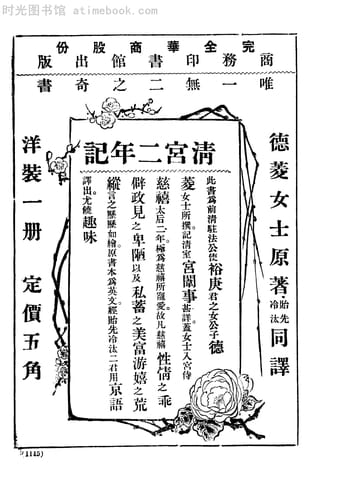 时光图书馆 atimebook.com
完全華商股份
商務印書館出版
唯一無二之奇書
德菱女士原著・貽先冷汰同譯
清宮二年記
此書爲前清駐法公使裕庚君之女公子德
菱女士所撰。記清室宮闈事甚詳。蓋女士入宮侍
慈禧太后二年。極爲慈禧所寵愛。故凡慈禧性情之乖
僻政見之卑陋以及私蓄之美富游嬉之荒
縱言之歷歷如繪。原書本爲英文。經貽先冷汰二君用京語
譯出。尤饒趣味
洋裝一册 定價五角
1145)